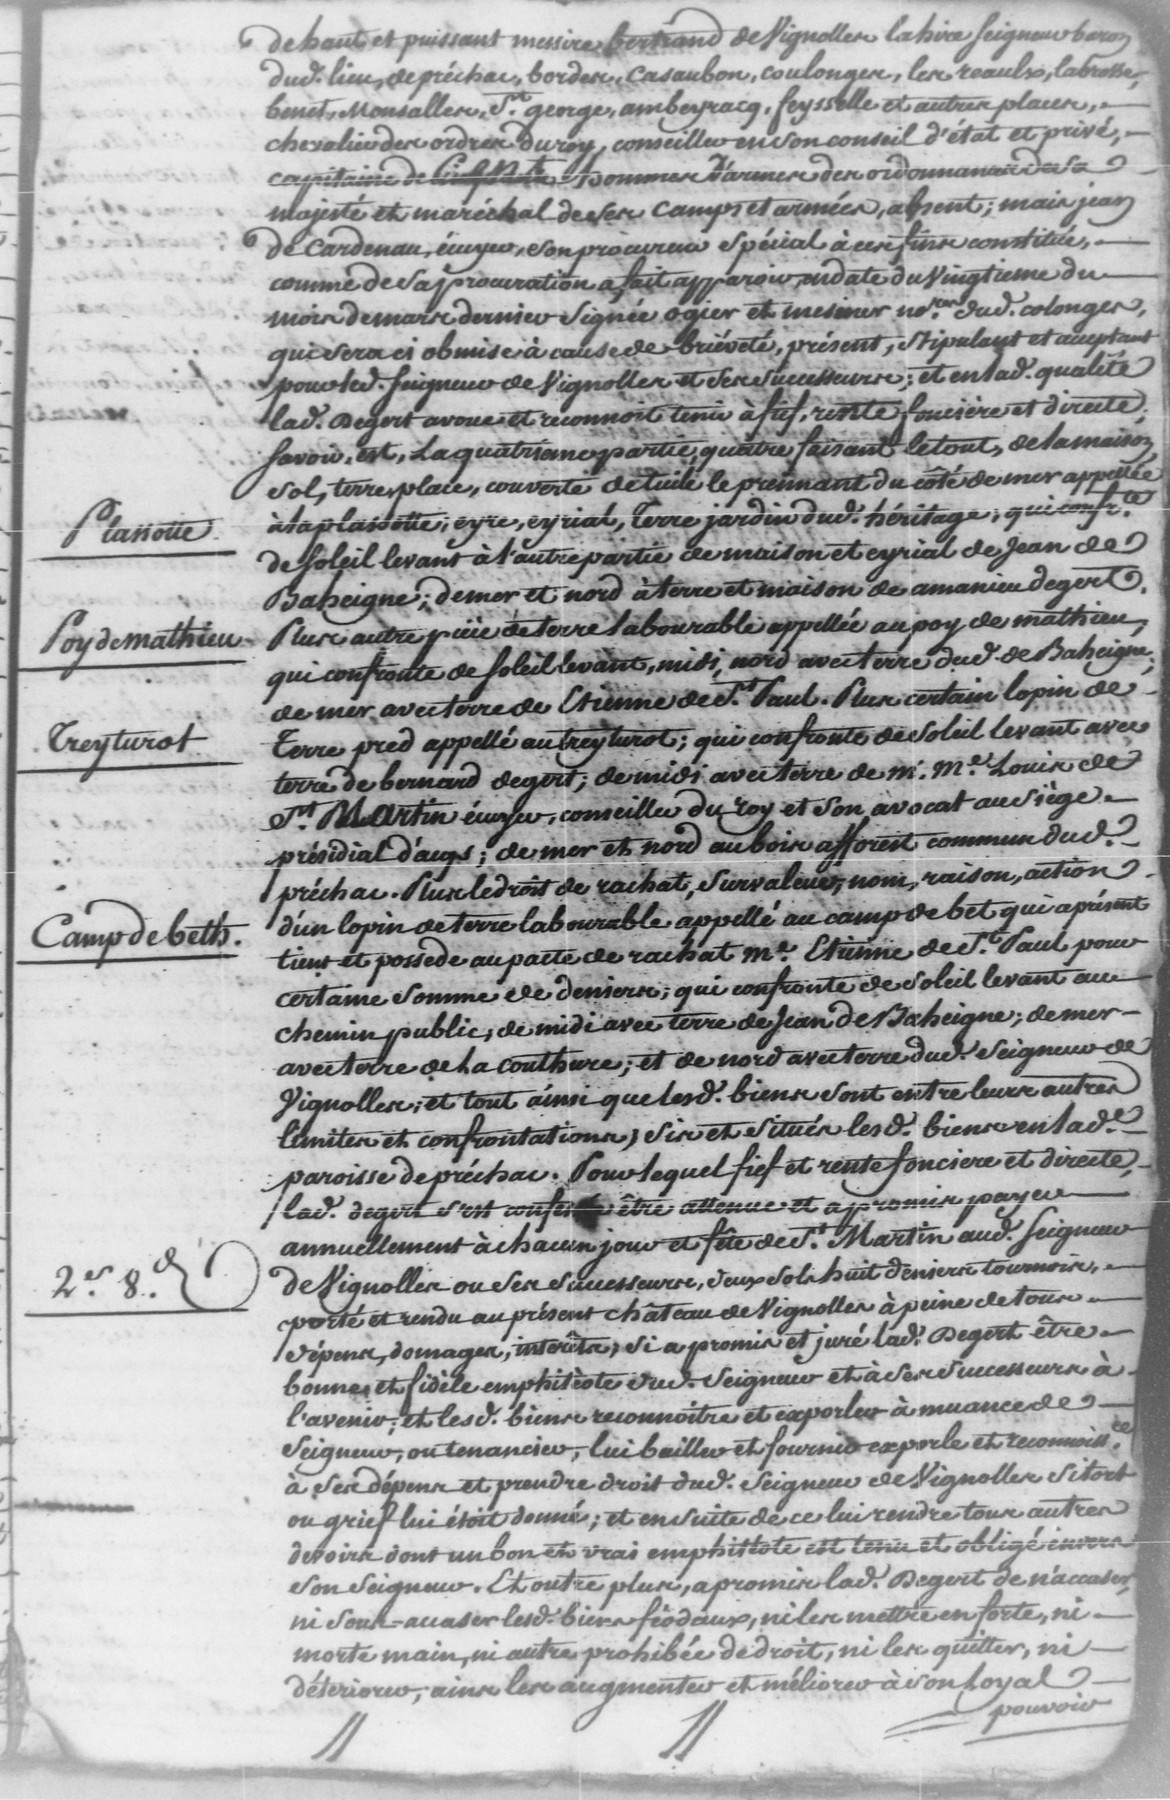 de haut et puissant messire bertrand de Vignolles lahire seigneur baron
dud. lieu, de préchac, bordes, Casaubon, coulonges, les reaulx, labrosse,
benet, Monsalles, St. george, ambeyracq, feysselle et autres places,
chevalier des ordres du roy, conseiller en son conseil d'état et privé,
capitaine de hommes d'armes des ordonnances de sa
majesté et maréchal de ses camps et armées, absent; mais jean
de Cardenau, écuyer, son procureur spécial à ces fins constitué,
comme de sa procuration a fait apparoir, en date du vingtieme du
mois de mars dernier signée ogier et mesmer nores. dud. colonges,
qui sera ci obmise à cause de briéveté, présent, stipulant et acceptant
pour led. seigneur de Vignolles et ses successeurs; et en lad. qualité
lad. Degert avoue et reconnoit tenir à fief, rente foncière et directe,
savoir, est, La quatrieme partie, quatre faisant le tout, de la maison,
sol, terre, place, couverte de tuile le prennant du côté de mer appellée
à la plassotte, eyre, eyrial, terre jardin dud. héritage, qui confr.te
de soleil levant à l'autre partie de maison et eyrial de Jean de
Baheigne; de mer et nord à terre et maison de amanieu degert.
Plassotte.
Plus autre pièce de terre labourable appellée au poy de mathieu,
Poy de mathieu
qui confronte de soleil levant, midi, nord avec terre dud. de Baheigne;
de mer avec terre de Etienne de St. Paul. Plus certain lopin de
Terre pred appellé au treyturot; qui confronte de soleil levant avec
Treyturot
terre de bernard degert; de midi avec terre de mr. Me. Louis de
St. Martin écuyer, conseiller du roy et son avocat au siège
présidial d'acqs; de mer et nord au bois afforest commun dud.
préchac. Plus le droit de rachat, survaleur, nom, raison, action
d'un lopin de terre labourable appellé au camp de bet qui a présent
Camp de beth.
tient et possede au pacte de rachat me. Etienne de St. Paul pour
certaine somme de deniers; qui confronte de soleil levant au
chemin public, de midi avec terre de Jean de Baheigne; de mer
avec terre de La couthure; et de nord avec terre dud. seigneur de
Vignolles; et tout ainsi que lesd. biens sont entre leurs autres
limites et confrontations, sis et situés lesd. biens en lad.e
paroisse de préchac. Pour lequel fief et rente fonciere et directe,
lad. degert s'est confessé être attenue et a promis payer
annuellement à chacun jour et fête de St. Martin aud. seigneur
de Vignolles ou ses successeurs, deux sols huit deniers tournois,
2.s 8.d
porté et rendu au présent château de Vignolles à peine de tous
dépens, domages, intérêts, si a promis et juré lad. Degert être
bonne et fidèle emphitéote dud. seigneur et à ses successeurs à
l'avenir; et lesd. biens reconnoitre et exporler à muance de
seigneur, ou tenancier, lui bailler et fournir exporle et reconnoiss.ce
à ses dépens et prendre droit dud. seigneur de Vignolles si tort
ou grief lui étoit donné; et ensuite de ce lui rendre tous autres
devoirs dont un bon et vrai emphitéote est tenu et obligé envers
son seigneur. Et outre plus, a promis lad. Degert de n'accaser,
ni sous-accaser lesd. biens féodaux, ni les mettre en forte, ni
morte main, ni autre prohibée de droit, ni les quitter, ni
déteriorer, ains les augmenter et méliorer à son Loyal
pouvoir